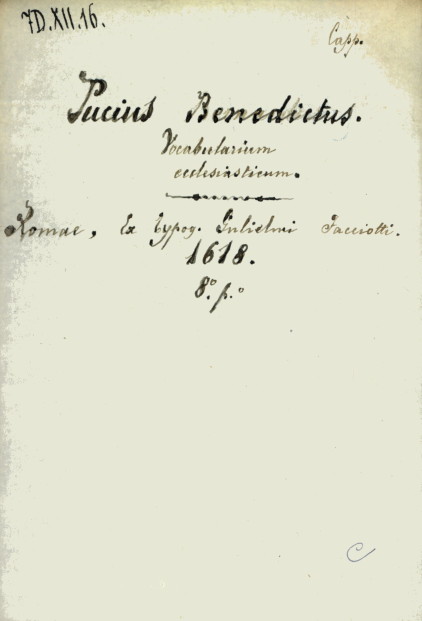 7D.XII.16.
Capp.
Pucius Benedictus.
Vocabularium
ecclesiasticum.
Romae, Ex typog. Gulielmi Facciotti.
1618.
8.° p.°
C